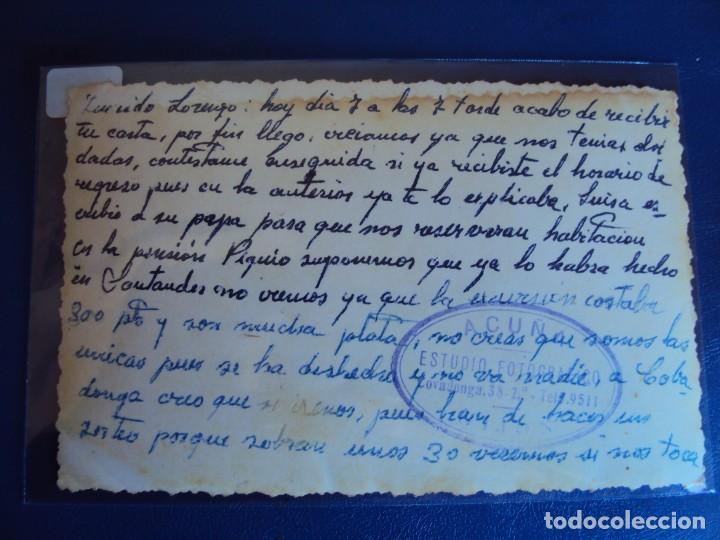 Querido Lorenzo: hoy dia 7 a las 7 tarde acabo de recibir
tu carta, por fin llego, creiamos ya que nos tenias olvi
dadas, contestame enseguida si ya recibiste el horario de
regreso pues en la anterior ya te lo explicaba, Luisa es-
cribio a su papa para que nos reservaran habitacion
en la pensión Piquio suponemos que ya lo habra hecho
en Santander no vremos ya que la excursión costaba
300 pts y son mucha plata, no creas que somos las
unicas pues se ha deshecho y no va nadie, a Coba-
donga creo que si iremos, pues han de hacer un
sorteo porque sobran unos 30 veremos si nos toca
ACUÑA
ESTUDIO FOTOGRAFICO
Covadonga, 38-2º - Telf. 9511
todocoleccion